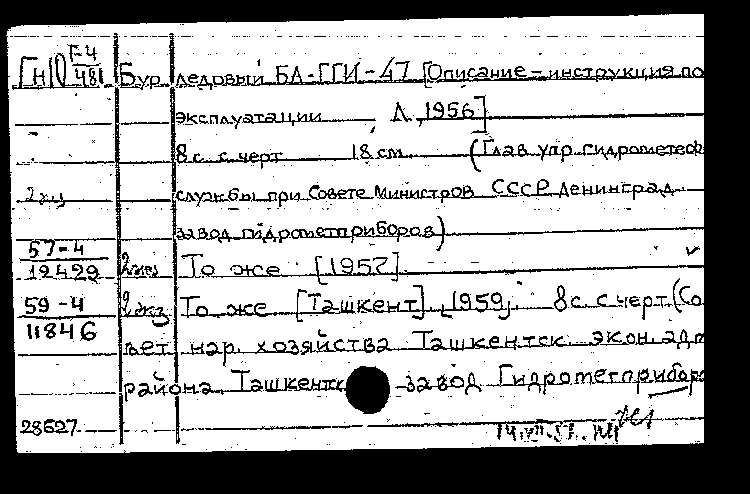 Г-4
481
Бур ледовый БЛ-ГГИ-47 [Описание-инструкция по
эксплуатации Л, 1956]
8 с. с черт 18 см (Глав упр. гидрометеор
2 экз службы при Совете Министров СССР Ленинград
завод гидрометприборов)
57-4
19429 2 экз То же [1957]
59-4 2 экз То же [Ташкент], 1959. 8 с. с черт. (Со
11846 вет нар. хозяйства Ташкентск. экон. адм
района Ташкентск завод Гидрометприборо
28627 14.VII.57.